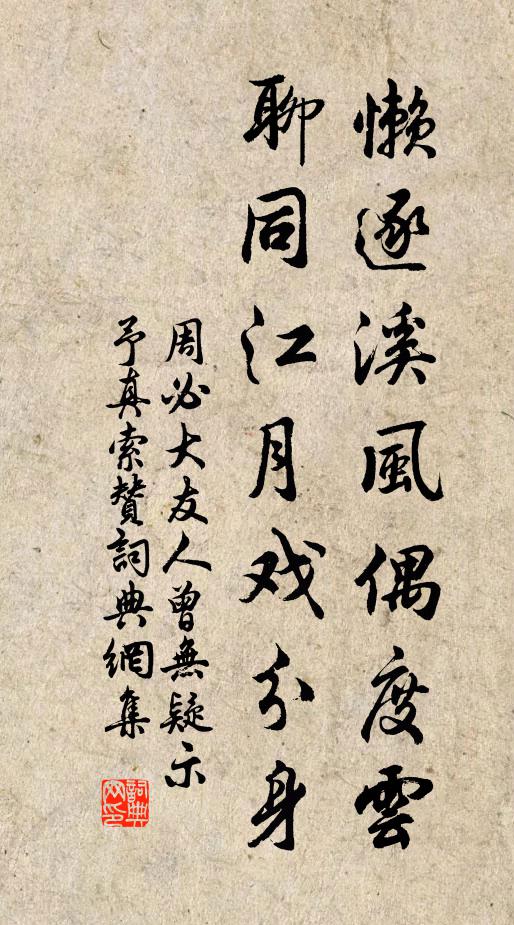 懶逐溪風偶度雲
聊同江月戏分身
周必大友人曾無疑示
予真索贊詞典網集
詞典网印